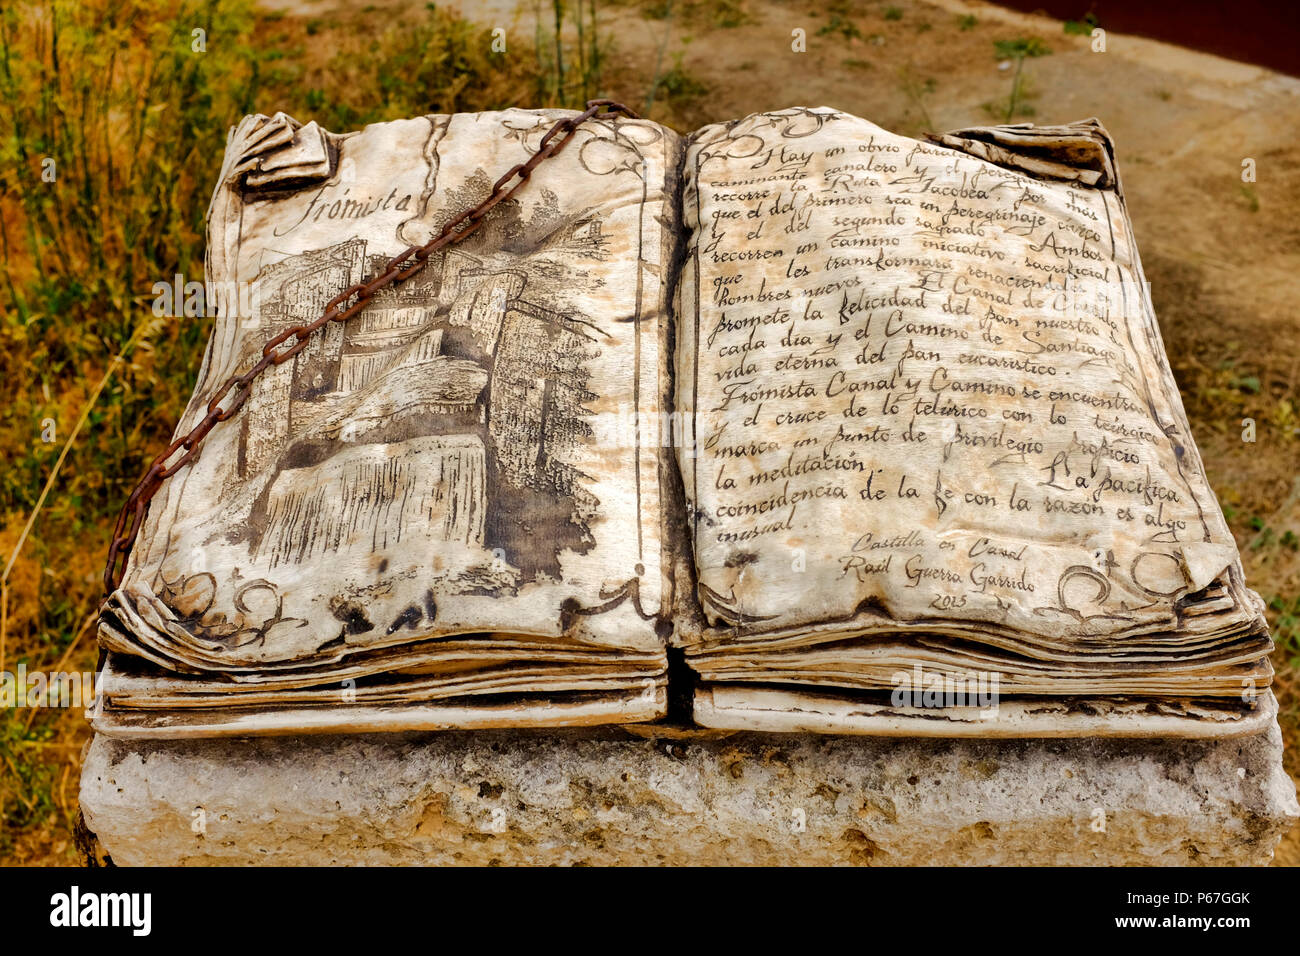 Frómista
Hay un obvio paral
caminante canalero y el peregrino que
recorre la Ruta Jacobea, por más
que el del primero sea un peregrinaje cívico
y el del segundo sagrado. Ambos
recorren un camino iniciativo sacrificial
que les transformara renaciendoles en
hombres nuevos. El Canal de Castilla
promete la felicidad del pan nuestro de
cada dia y el Camino de Santiago la
vida eterna del pan eucarístico.
Frómista Canal y Camino se encuentran
y el cruce de lo telúrico con lo teúrgico
marca un punto de privilegio propicio
la meditación. La pacífica
coincidencia de la fe con la razón es algo
inusual.
Castilla en Canal
Raúl Guerra Garrido
2015
alamy
alamy stock photo
P67GGK
www.alamy.com